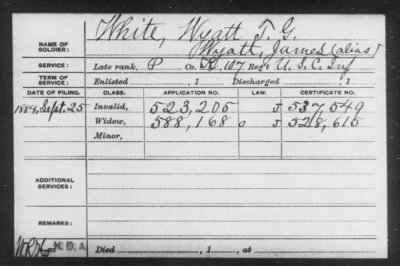 White, Wyatt T. G.
NAME OF SOLDIER: Wyatt, James (alias)
SERVICE: Late rank, P Co. 107 Reg't U. S. C. Inf
TERM OF SERVICE: Enlisted , 1 Discharged , 1
DATE OF FILING. CLASS. APPLICATION NO. LAW. CERTIFICATE NO.
1884, Sept. 25 Invalid, 523,205 J 537,549
Widow, 588,168 J 528,615
Minor,
ADDITIONAL SERVICES:
REMARKS:
N.D.A. Died , 1 , at